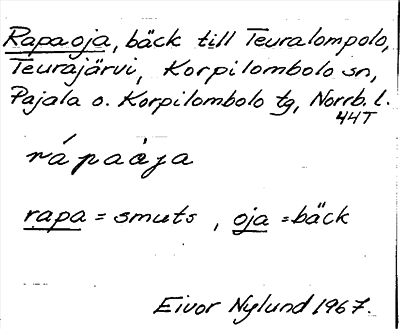 Rapaoja, bäck till Teuralompolo,
Teurajärvi, Korpilombolo sn,
Pajala o. Korpilombolo tg, Norrb. l.
44T
rápaàja
rapa = smuts, oja = bäck
Eivor Nylund 1967.